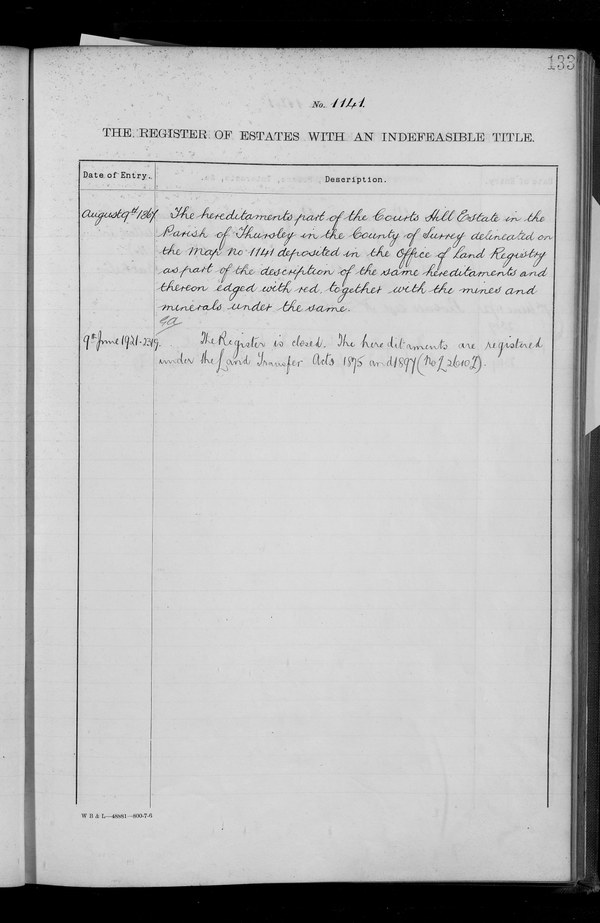 133
No. 1141.
THE REGISTER OF ESTATES WITH AN INDEFEASIBLE TITLE.
Date of Entry.
Description.
August 9th 1867
The hereditaments part of the Courts Hill Estate in the
Parish of Thursley in the County of Surrey delineated on
the Map No. 1141 deposited in the Office of Land Registry
as part of the description of the same hereditaments and
thereon edged with red together with the mines and
minerals under the same.
9th June 1921-2319.
The Register is closed. The hereditaments are registered
under the Land Transfer Acts 1875 and 1897 (No
W B & L—48881—800-7-6